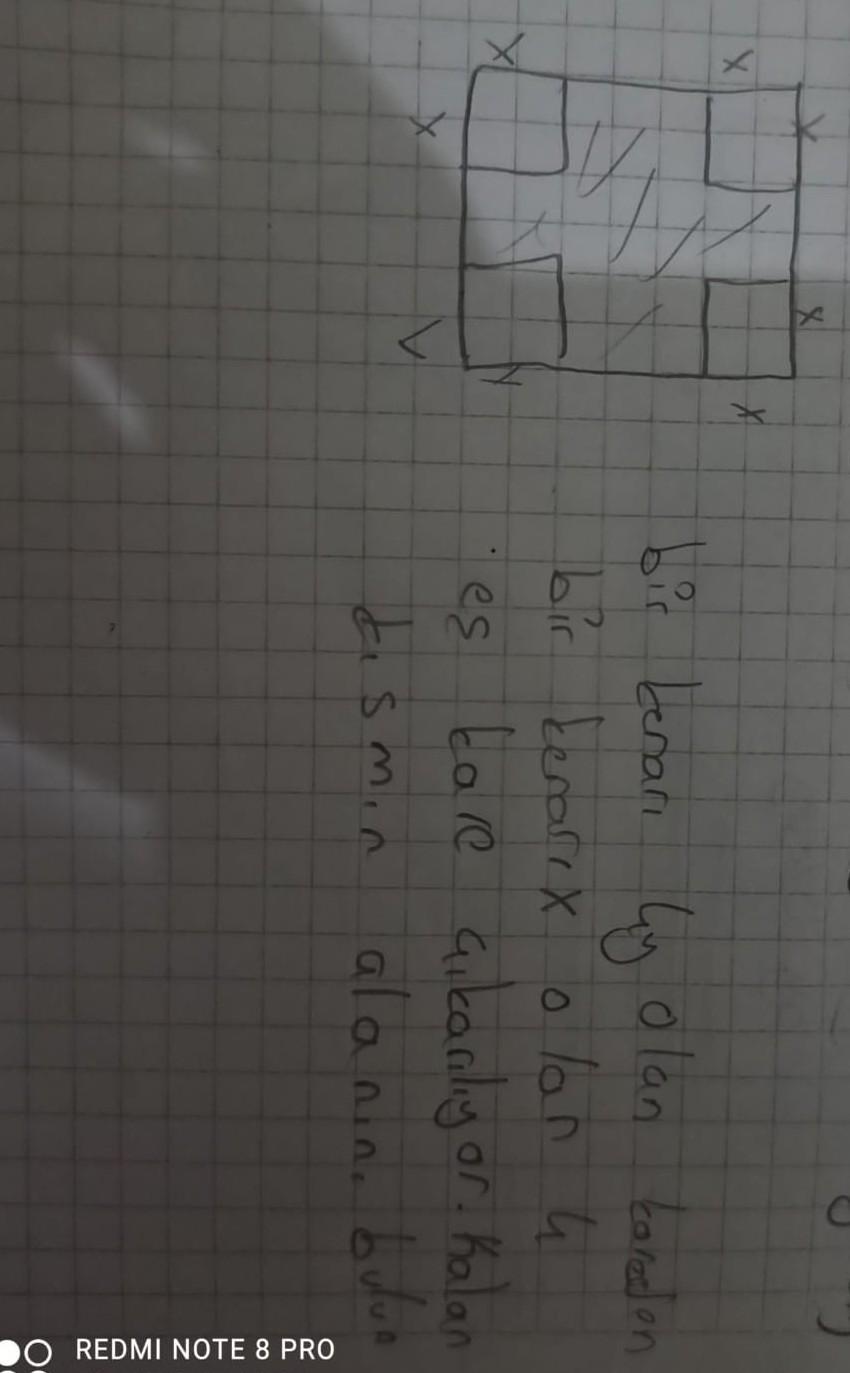 x x
x x
x
x
bir kenarı 4y olan kareden
bir kenarı x olan 4
eş kare çıkarılıyor. Kalan
kısmın alanını bulun
REDMI NOTE 8 PRO